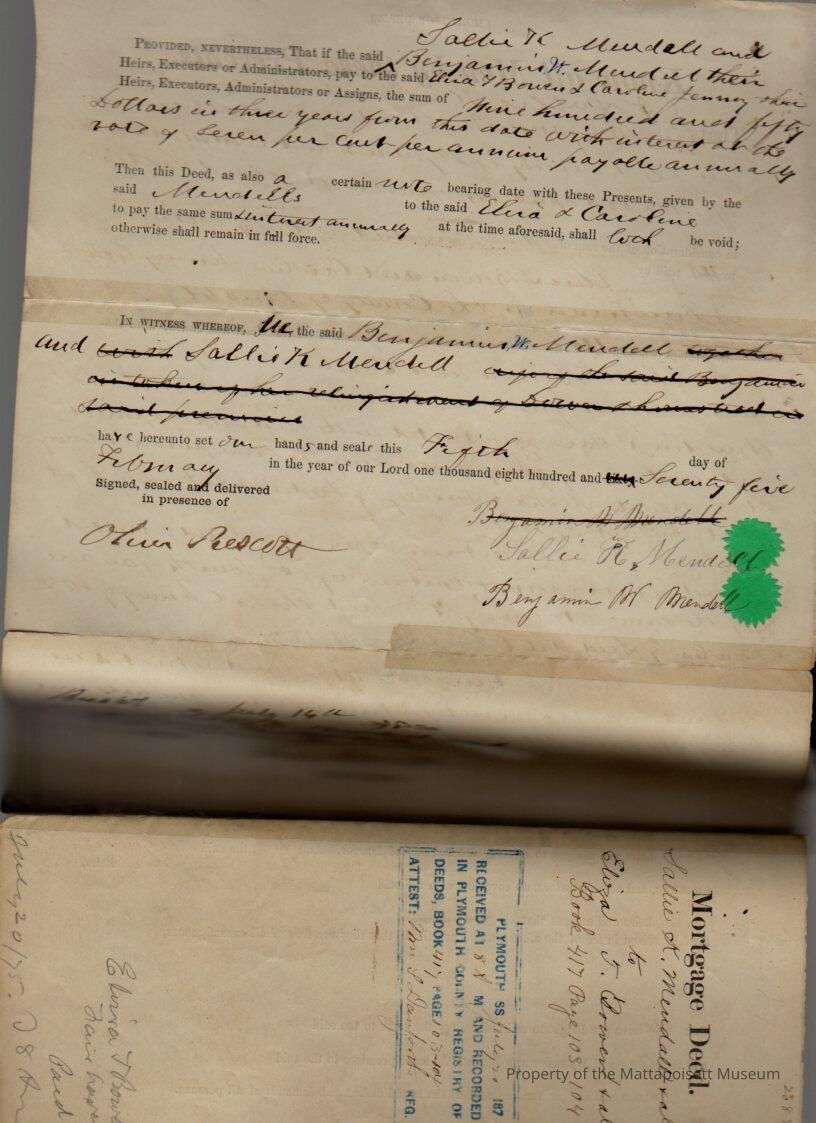 Sallie K Mendell and
PROVIDED, NEVERTHELESS, That if the said Benjamin W. Mendell their
Heirs, Executors or Administrators, pay to the said Eliza T Bowen & Caroline Jenney their
Heirs, Executors, Administrators or Assigns, the sum of Nine hundred and fifty
Dollars in three years from this date with interest at the
rate of Seven per cent per annum payable annually
Then this Deed, as also a certain note bearing date with these Presents, given by the
said Mendells to the said Eliza & Caroline
to pay the same sum & interest annually at the time aforesaid, shall both be void;
otherwise shall remain in full force.
IN WITNESS WHEREOF, We, the said Benjamin W. Mendell together
and with Sallie K Mendell wife of the said Benjamin
in token of her relinquishment of Dower & homestead in
said premises
have hereunto set our hands and seals this Fifth day of
February in the year of our Lord one thousand eight hundred and Seventy five
Signed, sealed and delivered
in presence of
Benjamin W Mendell
Oliver Prescott
Sallie K. Mendell
Benjamin W Mendell
July 14th
Mortgage Deed.
Sallie K. Mendell & al
to
Eliza T. Bowen & al
Book 417 Page 103-104
PLYMOUTH SS July 20 187
RECEIVED AT 8 A M AND RECORDED
IN PLYMOUTH COUNTY REGISTRY OF
DEEDS, BOOK 417, PAGE 103-104
ATTEST: Wm S Danforth REG.
Eliza T Bowe
Fairhaven
Paid
July 20/75. 8
Property of the Mattapoisett Museum